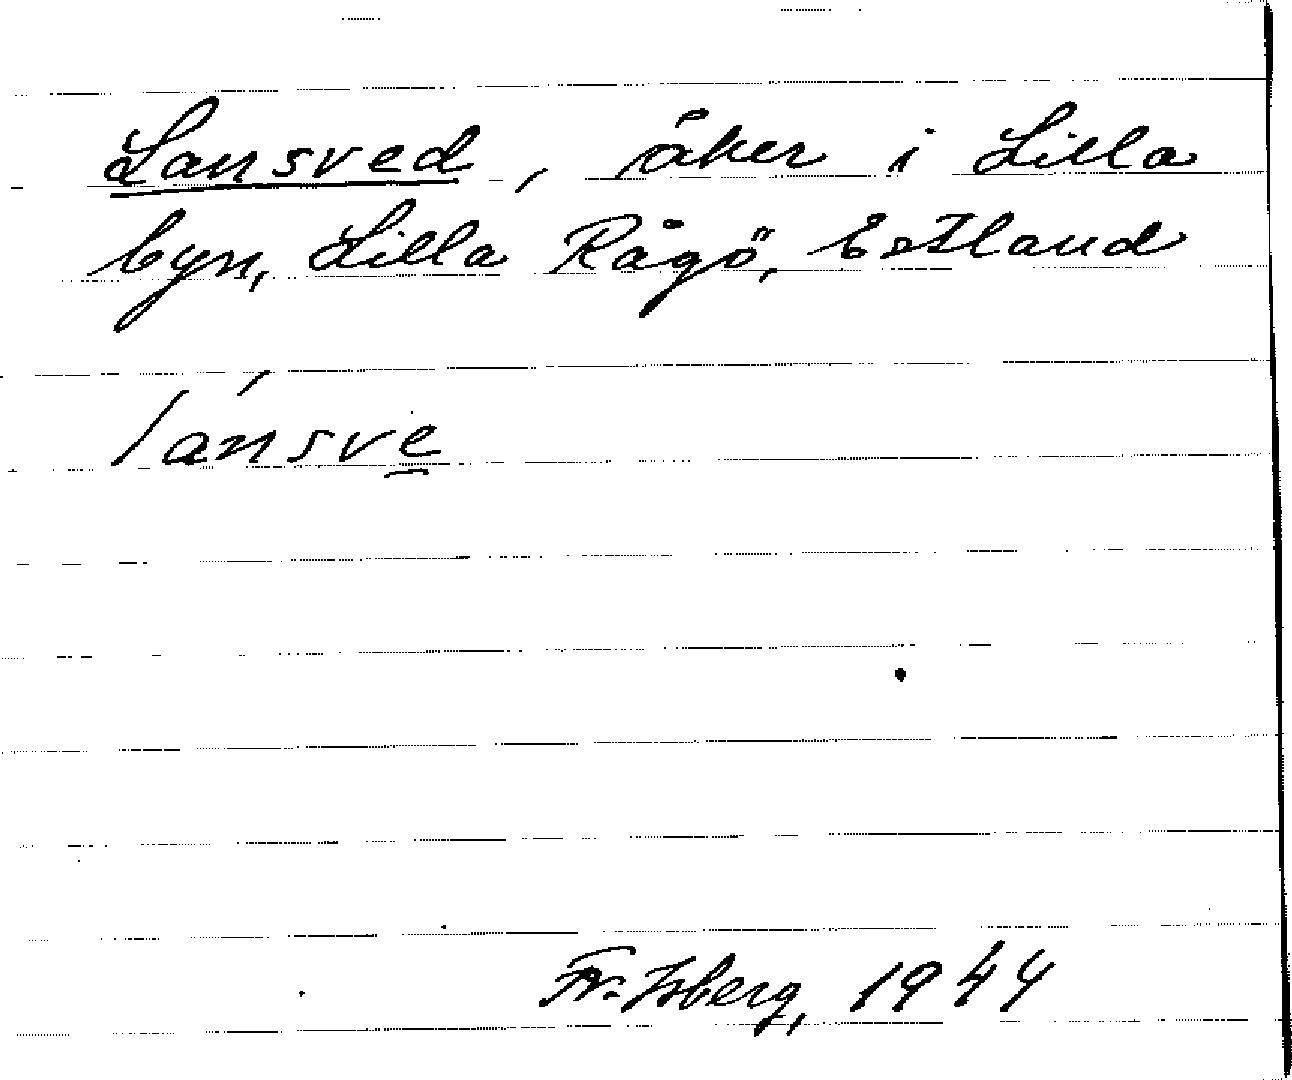 Lansved, åker i Lilla
byn, Lilla Rågö, Estland
lánsve̲
Fr. Isberg, 1944